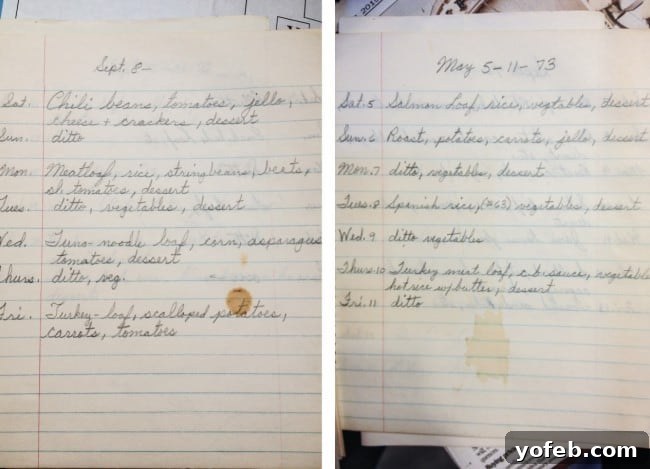 Sept. 8-
Sat. Chili beans, tomatoes, jello,
cheese + crackers, dessert
Sun. ditto
Mon. Meatloaf, rice, stringbeans, beets,
sl. tomatoes, dessert
Tues. ditto, vegetables, dessert
Wed. Tuna-noodle loaf, corn, asparagus
tomatoes, dessert
Thurs. ditto, veg.
Fri. Turkey-loaf, scalloped potatoes,
carrots, tomatoes
May 5-11-73
Sat. 5 Salmon Loaf, rice, vegtables, dessert
Sun. 6 Roast, potatoes, carrots, jello, dessert
Mon. 7 ditto, vegetables, dessert
Tues. 8 Spanish rice, (#63) vegetables, dessert
Wed. 9 ditto vegetables
Thurs. 10 Turkey meat loaf, c.b. sauce, vegetable
hot rice w/butter, dessert
Fri. 11 ditto
yofeb.com